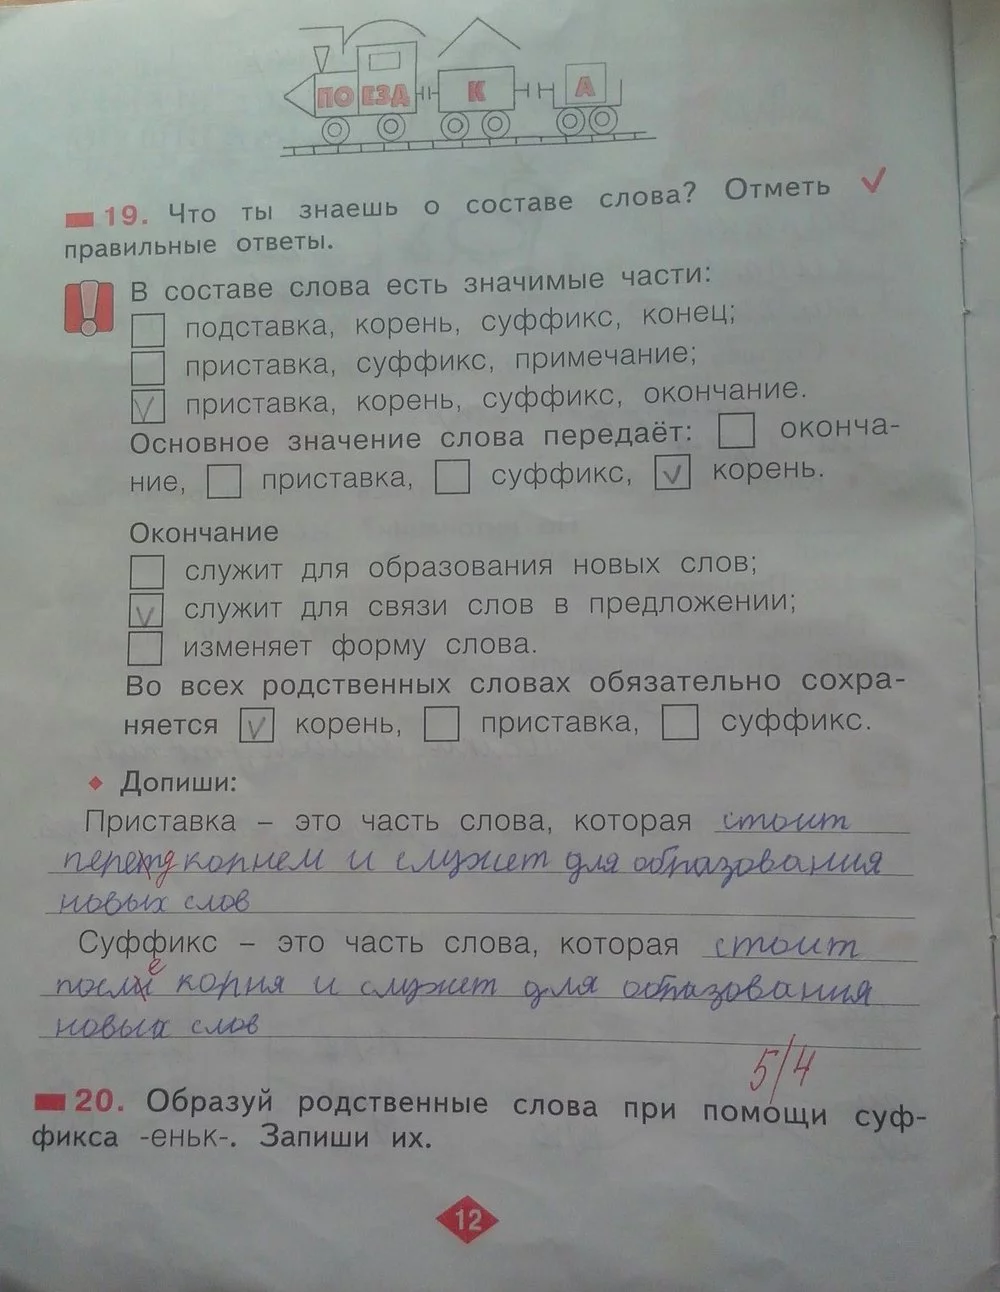 ПО ЕЗД К А
19. Что ты знаешь о составе слова? Отметь ✓
правильные ответы.
В составе слова есть значимые части:
подставка, корень, суффикс, конец;
приставка, суффикс, примечание;
✓ приставка, корень, суффикс, окончание.
Основное значение слова передаёт: оконча-
ние, приставка, суффикс, ✓ корень.
Окончание
служит для образования новых слов;
✓ служит для связи слов в предложении;
изменяет форму слова.
Во всех родственных словах обязательно сохра-
няется ✓ корень, приставка, суффикс.
Допиши:
Приставка – это часть слова, которая стоит
перед корнем и служет для образования
новых слов
Суффикс – это часть слова, которая стоит
после корня и служет для образования
новых слов
5/4
20. Образуй родственные слова при помощи суф-
фикса -еньк-. Запиши их.
12